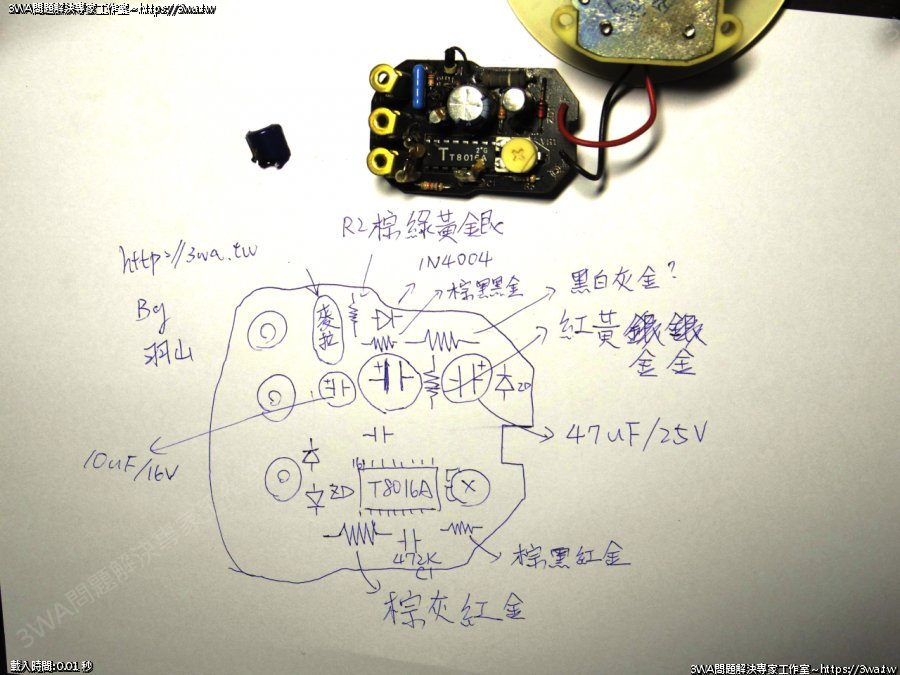 3WA問題解決專家工作室~https://3wa.tw
2*G
T T8016A
R2棕綠黃銀
http://3wa.tw
1N4004
棕黑黑金
黑白灰金?
By
羽山
麥拉
紅黃銀銀
金金
ZD
47uF/25V
10uF/16V
16
ZD
T8016A
472K
C1
棕黑紅金
棕灰紅金
3WA問題解決專家工作室
載入時間:0.01 秒
3WA問題解決專家工作室~https://3wa.tw